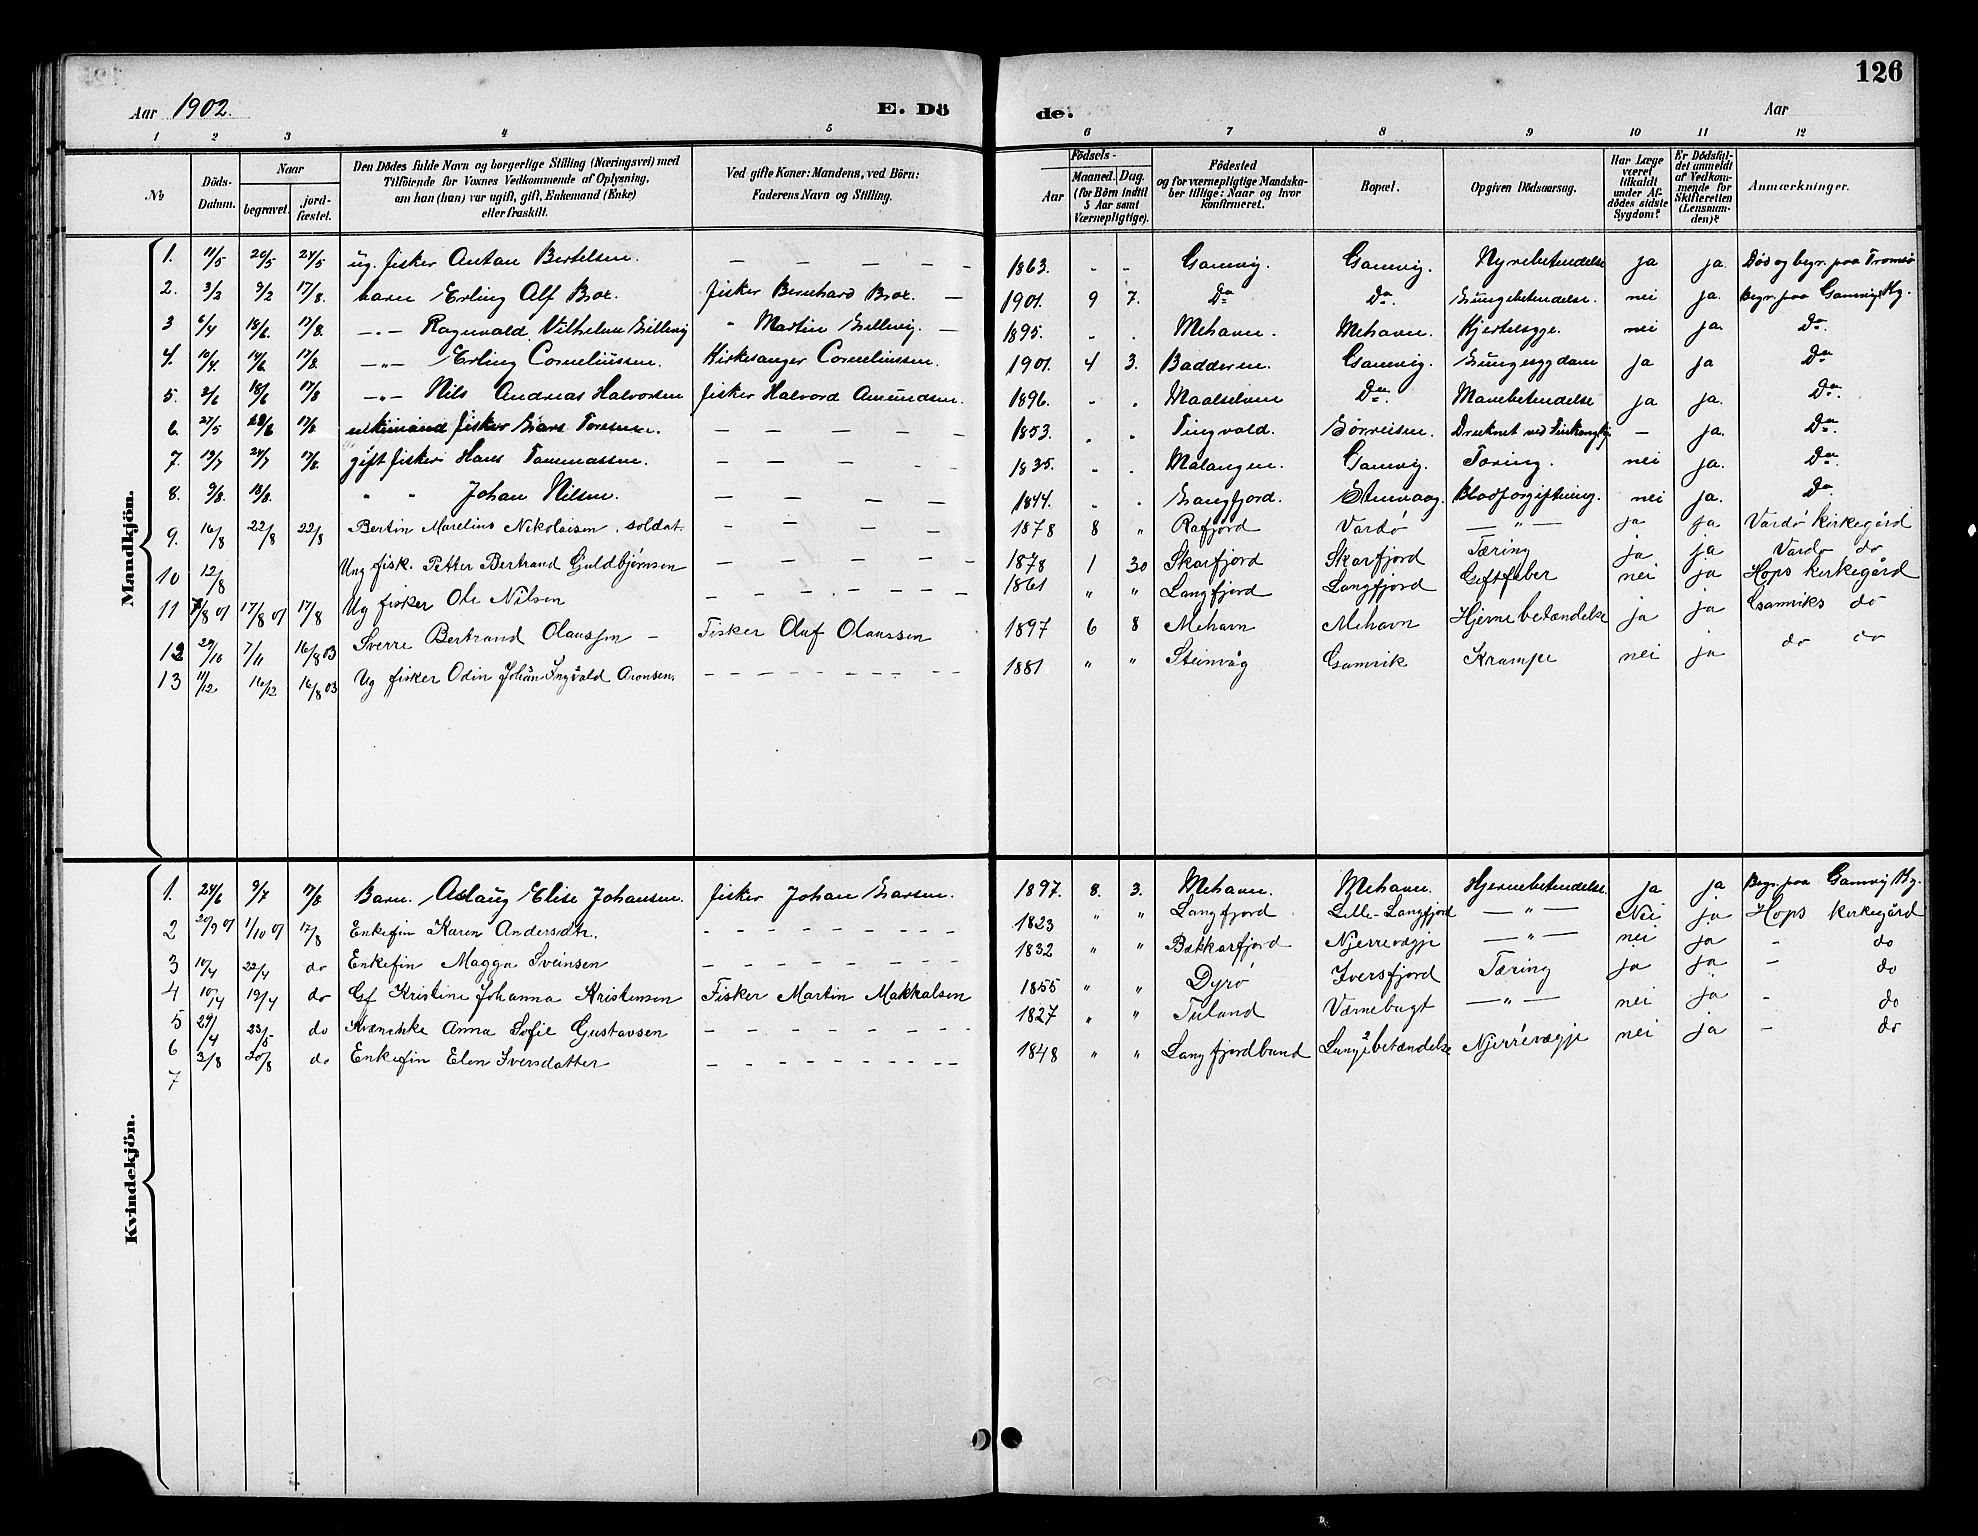 126
Aar 1902. E. Dö de. Aar
1 2 3 4 5 6 7 8 9 10 11 12
№ Döds-Datum. Naar begravet. jord-fæstet. Den Dödes fulde Navn og borgerlige Stilling (Næringsvei) med Tilföiende for Voxnes Vedkommende af Oplysning, om han (hun) var ugift, gift, Enkemand (Enke) eller fraskilt. Ved gifte Koner: Mandens, ved Börn: Faderens Navn og Stilling. Födsels- Aar Maaned. Dag. (for Börn indtil 5 Aar samt Værnepligtige). Födested og for værnepligtige Mandskaber tillige: Naar og hvor konfirmeret. Bopæl. Opgiven Dödsaarsag. Har Læge været tilkaldt under Afdödes sidste Sygdom? Er Dödsfaldet anmeldt af Vedkommende for Skifteretten (Lensmanden)? Anmærkninger.
Mandkjön.
1. 11/5 20/5 24/5 ug. fisker Anton Bertelsen. — — — — 1863. - - Gamvig. Gamvig. Nyrebetendelse ja ja Död og begr. paa Tromsö
2. 3/2 9/2 17/8. barn Erling Alf Brox. fisker Bernhard Brox. — 1901. 9 7. Do Do Lungebetendelse. nei ja. Begr. paa Gamvig Kg.
3 6/4 18/6. 17/8. —„— Ragnvald Vilhelm Lillevig „ Martin Lillevig. — 1895. . . Mehavn. Mehavn. Hjertesyge. nei ja. Do
4. 10/4. 14/6 17/8. —„— Erling Corneliussen Kirkesanger Corneliussen. 1901. 4 3. Badderen. Gamvig. Lungesygdom ja ja Do
5. 3/6 18/6 17/8 —„— Nils Andreas Halvorsen fisker Halvord Amundsen. 1896. . . Maalselven Do Mavebetendelse ja ja. Do
6. 27/5 28/6 17/8. enkemand fisker Lars Torensen. — — — — 1853. . . Tingvold. Sörreisen. Druknet ved Finkongkj — ja. Do
7. 19/7 24/7 17/8. gift fisker Hans Tommassen. — — — — 1835. . . Malangen. Gamvig. Tæring. nei ja. Do
8. 9/8. 13/8. „ „ Johan Nilsen. — — — — 1844. . . Langfjord. Stenvaag. Blodforgiftning. nei ja. Do
9. 16/8 22/8 22/8 Bertin Marelius Nikolaisen, soldat. — — — — 1878 8 „ Rafjord Vardø —„— ja ja Vardø kirkegård
10 12/8 Ung fisk. Petter Bertrand Guldbjørnsen — — — — 1878 1 30 Skarfjord Skarfjord Tæring ja ja Vardø do
11 7/8 01 17/8 01 17/8 Ug fisker Ole Nilsen — — — — 1861 „ „ Langfjord Langfjord Giftfeber nei ja Hops kirkegård
12 29/10 7/11 16/8 03 Sverre Bertrand Olaussen — Fisker Oluf Olaussen 1897 6 8 Mehavn Mehavn Hjernebetændelse ja ja Gamviks do
13 11/12 16/12 16/8 03 Ug fisker Odin Johan Ingvald Aronsen. — — — — 1881 „ „ Steinvåg Gamvik Krampe nei ja do do
Kvindekjön.
1. 24/6 9/7 17/8 Barn. Aslaug Elise Johansen. fisker Johan Larsen. 1897. 8. 3. Mehavn. Mehavn. Hjernebetendelse. ja ja Begr. paa Gamvig Kg.
2 20/9 01 1/10 01 17/8 Enkefin Karen Andersdtr. — — — — 1823 „ „ Langfjord Lille-Langfjord —„— Nei ja Hops kirkegård
3 10/4 22/4 do Enkefin Magga Sveinsen — — — — 1832 „ „ Bakkarfjord Njerrevægje —„— nei ja - do
4 10/4 19/4 do Gf Kristine Johanna Kristensen Fisker Martin Makkalsen 1855 „ „ Dyrø Iversfjord Tæring ja ja - do
5 29/4 23/5 do Kvænenke Anna Sofie Gustavsen — — — — 1827 „ „ Tuland Værnebugt —„— nei ja - do
6 3/8 20/8 do Enkefin Elen Iversdatter — — — — 1848 „ „ Langfjordbund Lungebetændelse Njerrévægje nei ja - do
7